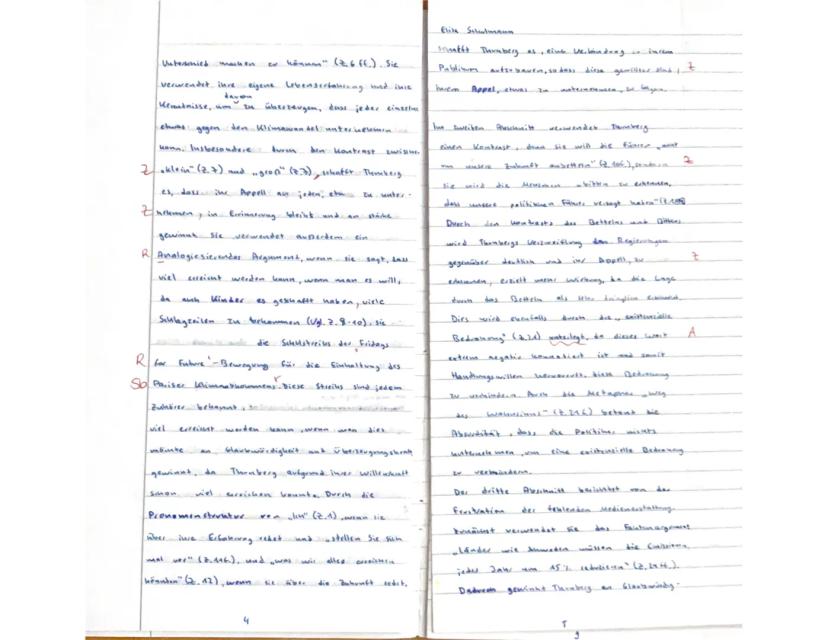 Unterschied machen zu können" (Z. 6 ff.). Sie
verwendet ihre eigene Lebenserfahrung und ihre
davon
Kenntnisse, um zu überzeugen, dass jeder einzelne
etwas gegen den Klimawandel unternehmen
kann. Insbesondere durch den Kontrast zwischen
Z „klein" (Z. 7) und „groß" (Z. 7), schafft Thunberg
es, dass ihr Appell an jeden, etw. zu unter-
Z nehmen, in Erinnerung bleibt und an stärke
gewinnt. Sie verwendet außerdem ein
R Analogiesierendes Argument, wenn sie sagt, dass
viel erreicht werden kann, wenn man es will,
da auch Kinder es geschafft haben, viele
Schlagzeilen zu bekommen (Vgl. Z. 8-10). Sie
die Schulstreiks der Fridays
R for Future'-Bewegung für die Einhaltung des
Sb Pariser Klimaabkommens. Diese Streiks sind jedem
Zuhörer bekannt,
viel erreicht werden kann, wenn man dies
an Glaubwürdigkeit und Überzeugungskraft
gewinnt, da Thunberg aufgrund ihrer Willenskraft
schon viel erreichen konnte. Durch die
Pronomenstruktur von „Ich" (Z. 1), wenn sie
über ihre Erfahrung redet und „stellen Sie sich
mal vor" (Z. 11f.), und „was wir alles erreichen
könnten" (Z. 12), wenn sie über die Zukunft redet,
4
schafft Thunberg es, eine Verbindung zu ihrem
Publikum aufzubauen, sodass diese gewillter sind, Z
ihrem Appell, etwas zu unternehmen, zu folgen.
Im zweiten Abschnitt verwendet Thunberg
einen Kontrast, denn sie will die Führer „nicht
um unsere Zukunft anbetteln" (Z. 16f.), sondern Z
sie wird die Menschen „bitten zu erkennen,
dass unsere politischen Führer versagt haben"
Durch den Kontrasts des Bettelns und Bittens
wird Thunbergs Verzweiflung den Regierungen
gegenüber deutlich und ihr Appell, zu Z
erkennen, erzielt mehr Wirkung, da die Lage
durch das Betteln als
Dies wird ebenfalls durch die „existenzielle
Bedrohung" (Z. 21) unterlegt, da dieses Wort A
extrem negativ konnotiert ist und somit
Handlungswillen hervorruft, diese Bedrohung
zu verhindern. Auch die Metapher „Weg
des Wahnsinns" (Z. 21f.) betont die
Absurdität, dass die Politiker nichts
unternehmen, um eine existenzielle Bedrohung
zu verhindern.
Der dritte Abschnitt berichtet von der
Frustration der fehlenden Medienerstattung.
Zunächst verwendet sie das Faktenargument
„Länder wie Schweden müssen die Emissionen
jedes Jahr um 15% reduzieren"
Dadurch gewinnt Thunberg an Glaubwürdig-
5
9